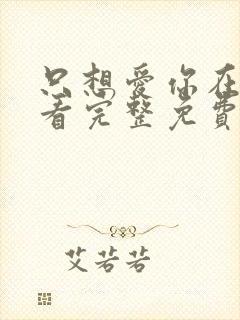 只想爱你在
看完整免费
艾若若